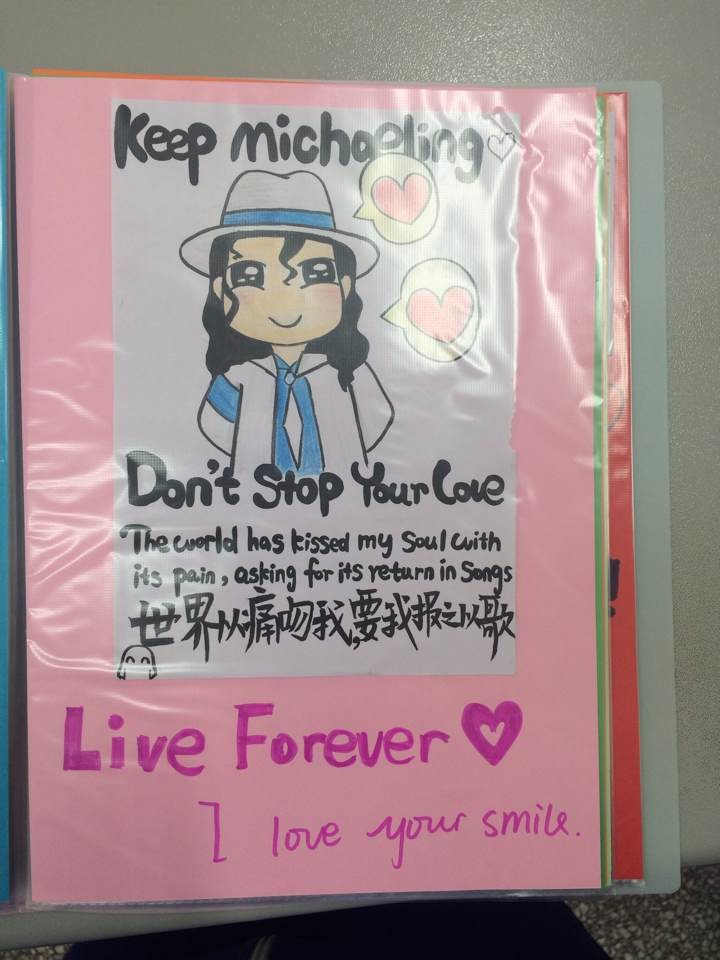 Keep michaeling
Don't Stop Your Love
The world has kissed my Soul with
its pain, asking for its return in Songs
世界以痛吻我,要我报之以歌
Live Forever
I love your smile.